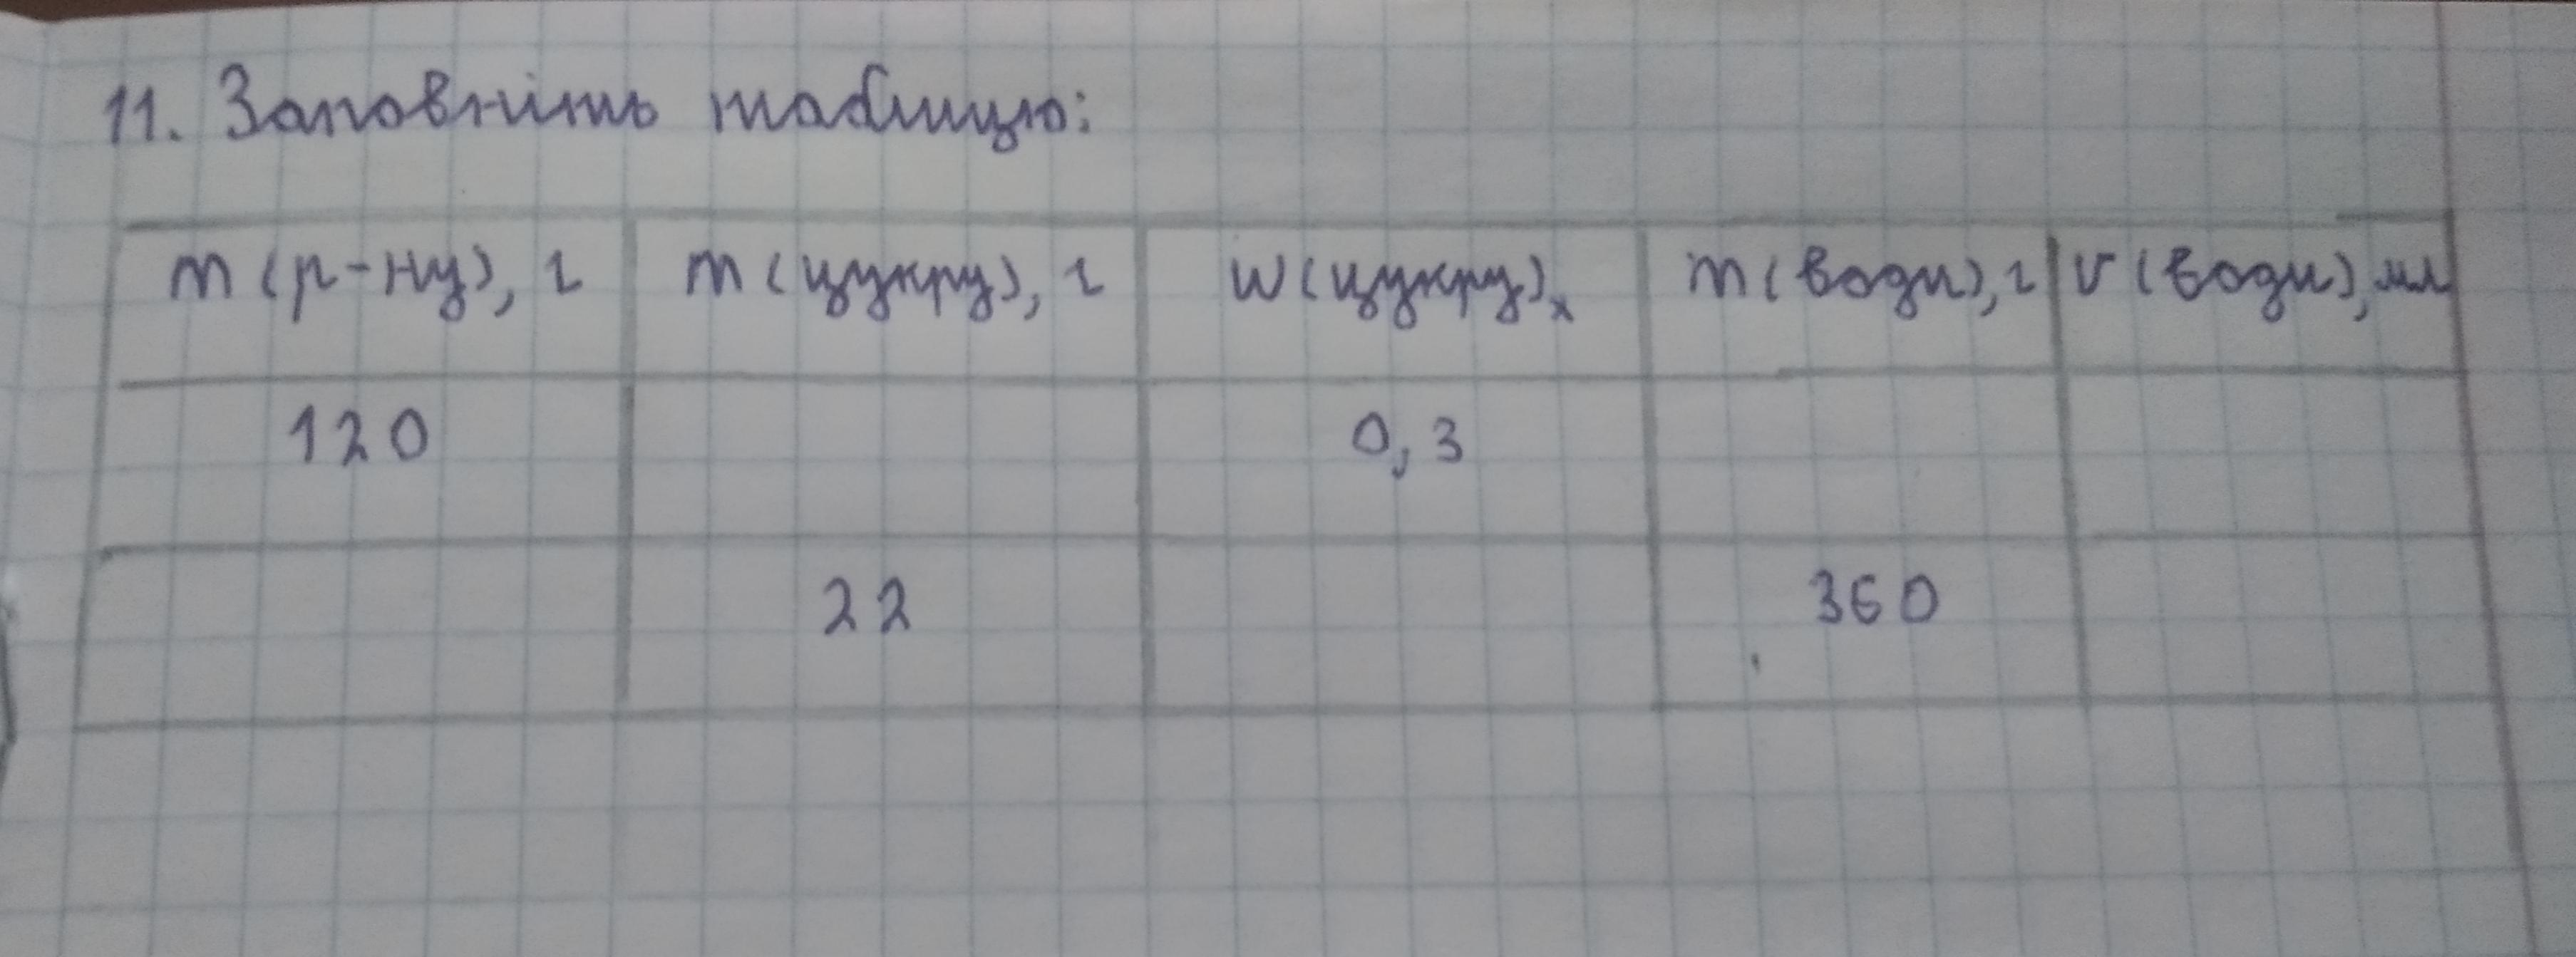 11. Заповніть таблицю:
m (р-ну), г m (цукру), г w (цукру), m (води), г v (води), мл
120 0,3
22 360